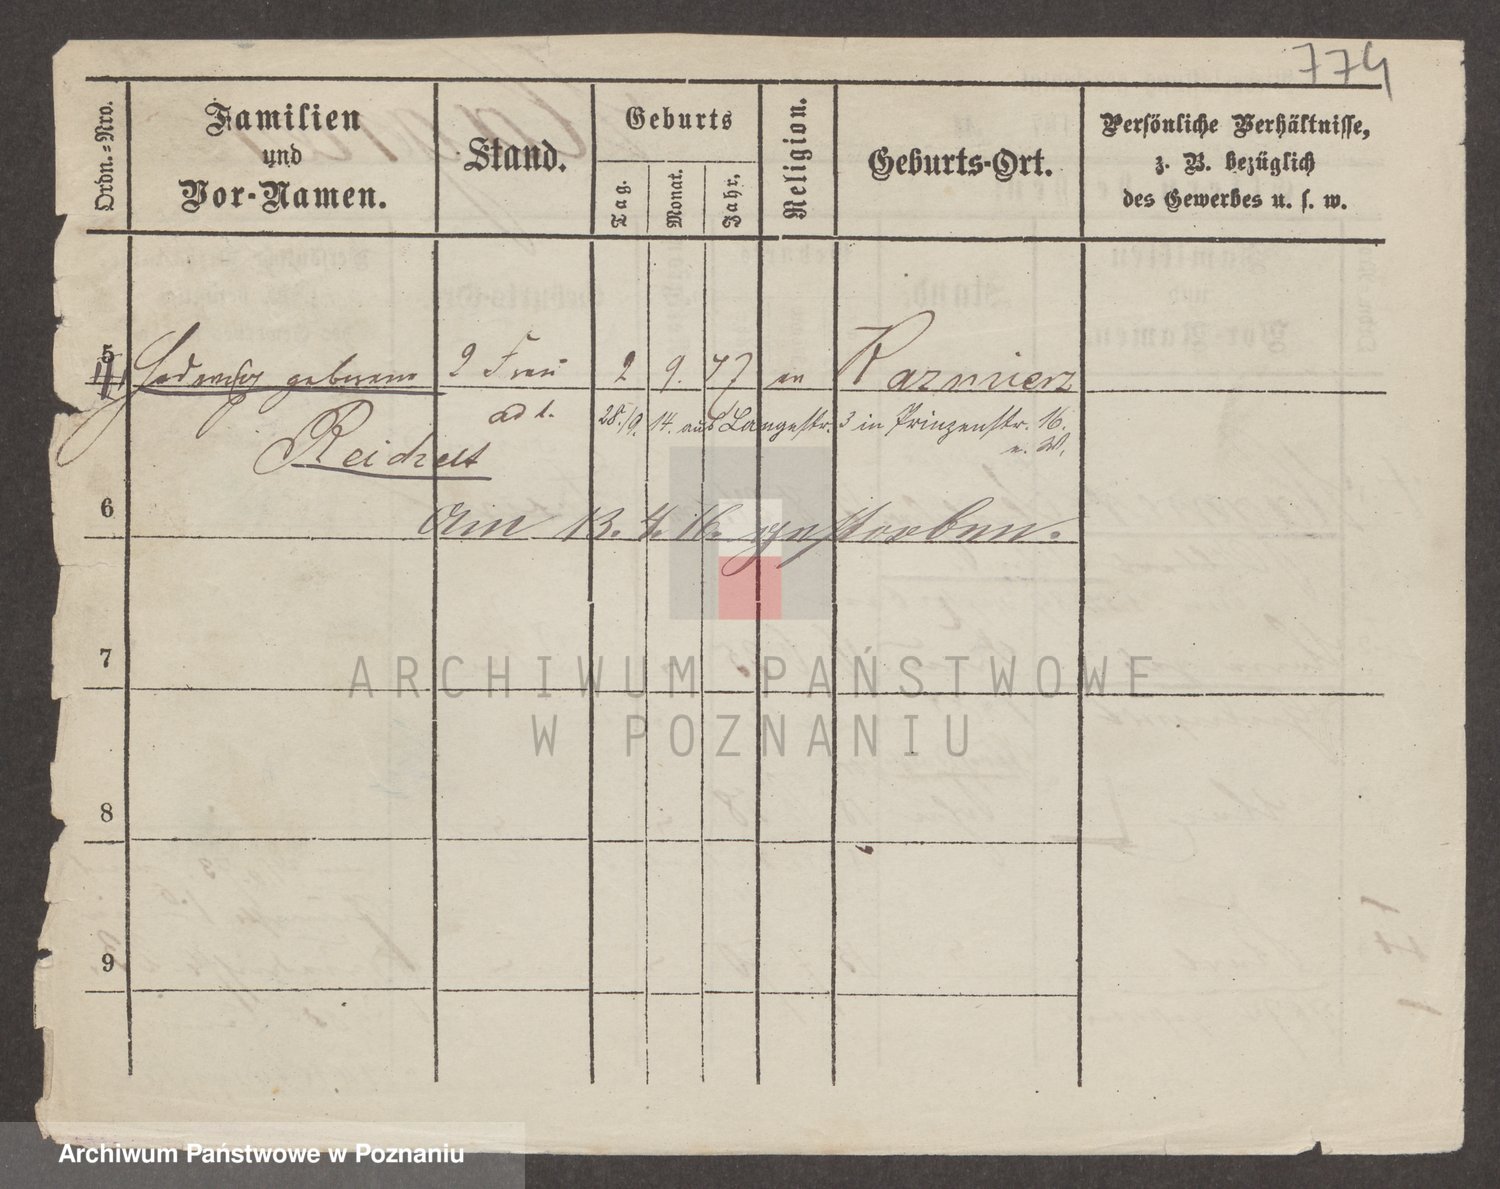 774
Ordn.-Nro.
Familien
und
Vor-Namen.
Stand.
Geburts
Tag.
Monat.
Jahr.
Religion.
Geburts-Ort.
Persönliche Verhältnisse,
z. B. bezüglich
des Gewerbes u. s. w.
5
Hedwig geborene 2 Frau 2 9. 77 ev Kazmierz
28./9. 14. aus Langestr. 3 in Prinzenstr. 16.
Reichelt
6
Am 13. 4. 16. gestorben.
7
ARCHIWUM PAŃSTWOWE
W POZNANIU
8
9
Archiwum Państwowe w Poznaniu